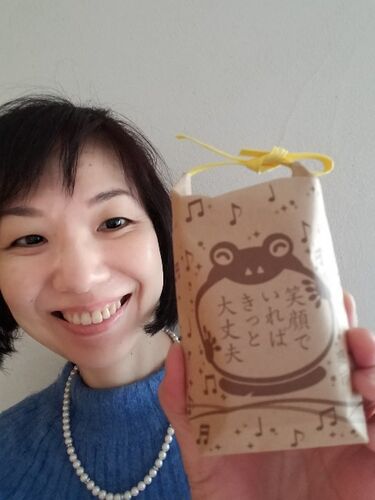 笑顔で
いれば
きっと
大丈夫